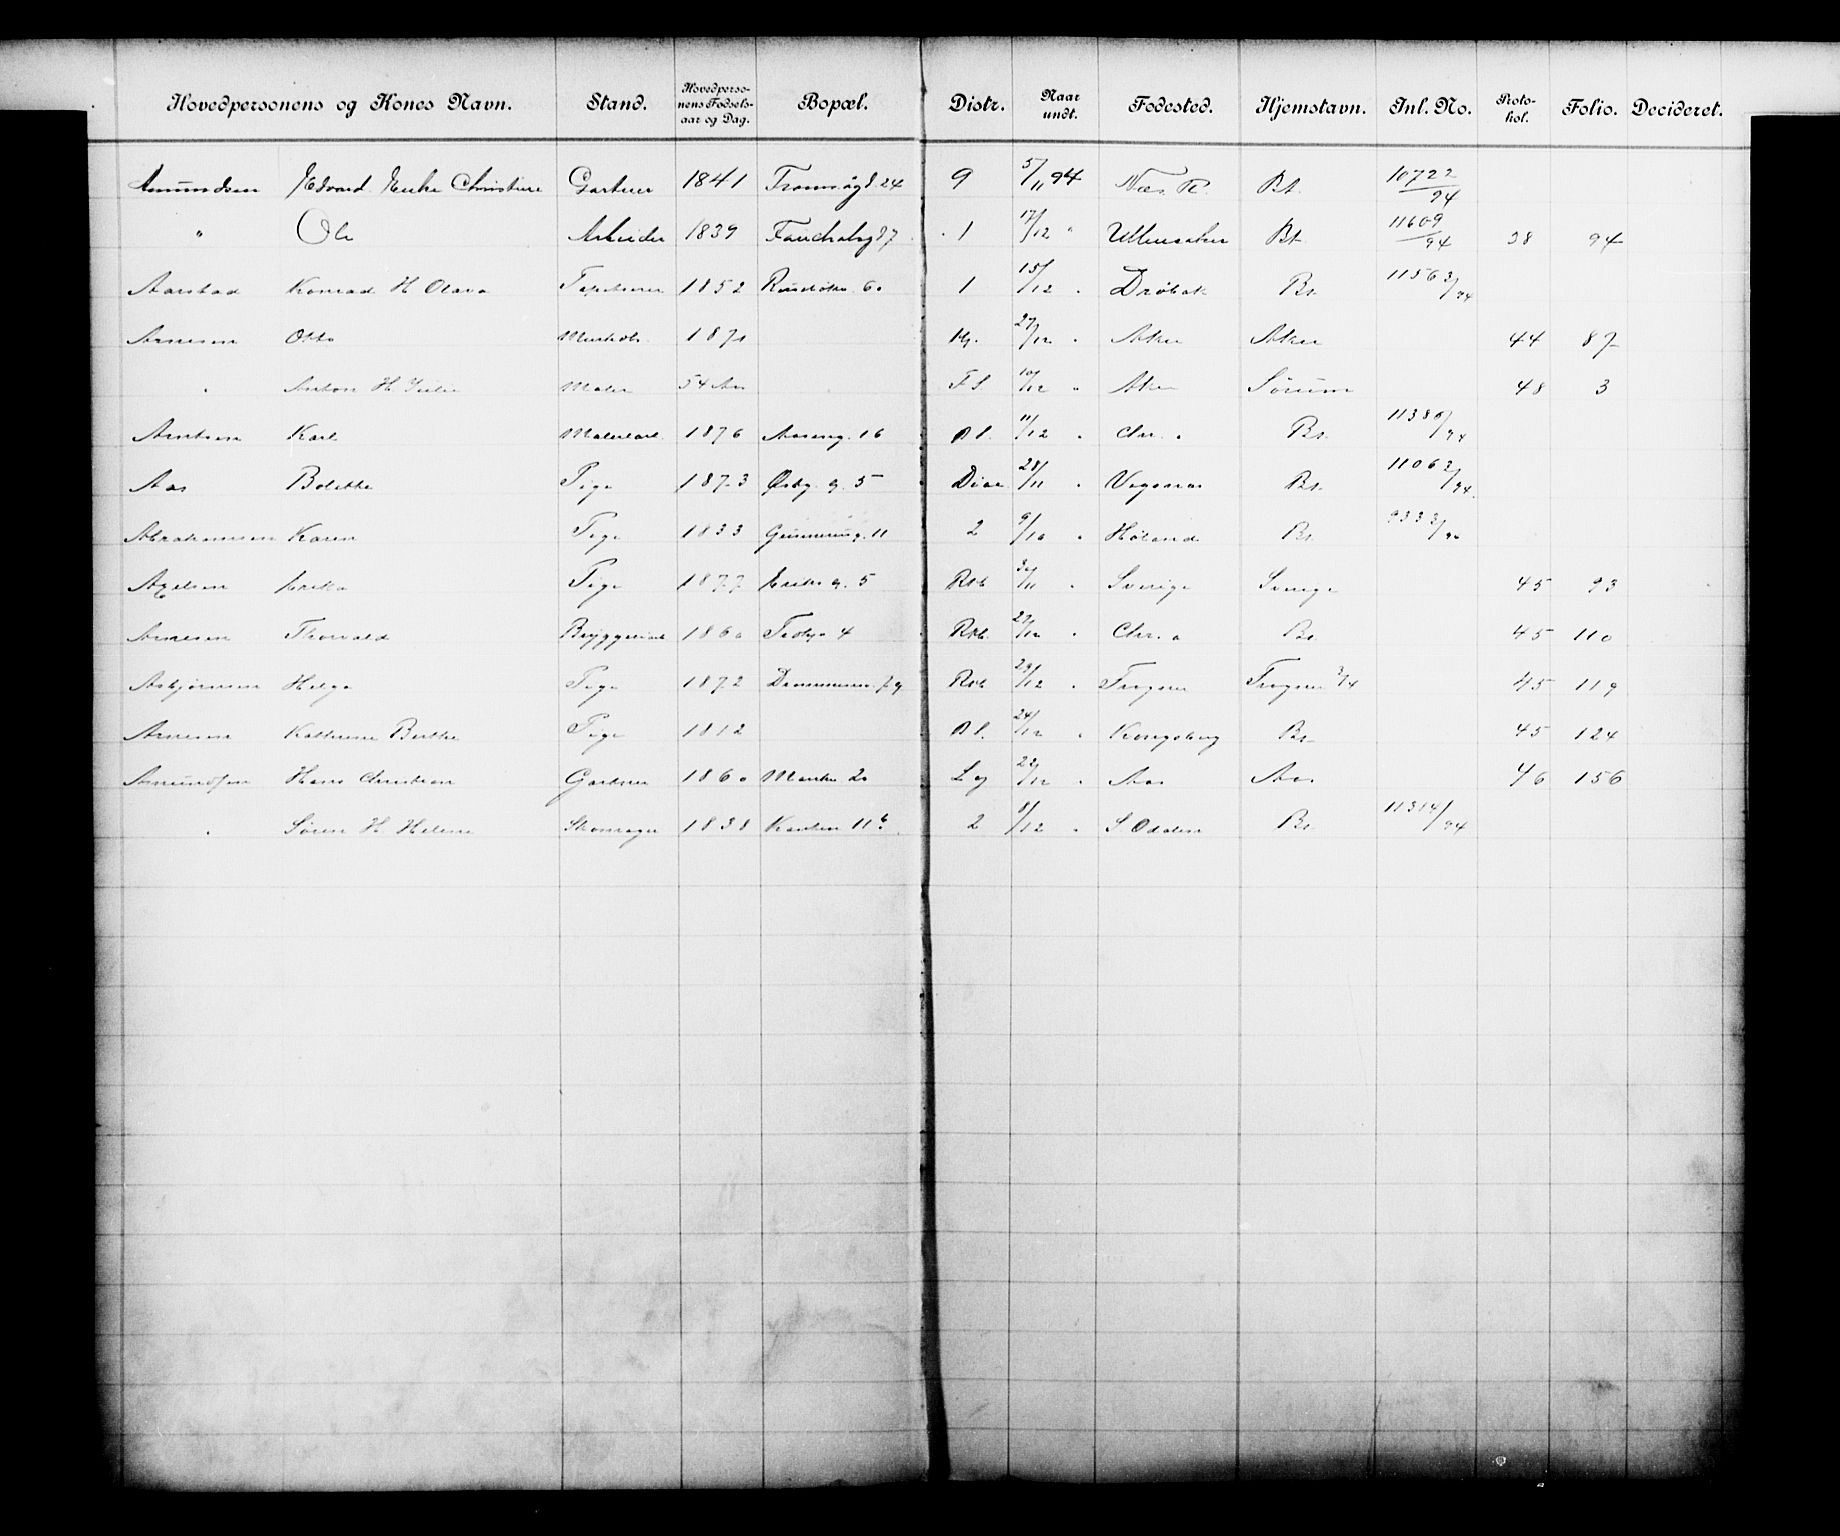 Hovedpersonens og Kones Navn. Stand. Hovedpersonens Fødselsaar og Dag. Bopæl. Distr. Naar undt. Fødested. Hjemstavn. Inl. No. Protokol. Folio. Decideret.
Amundsen Edvard Enke Christine Gartner 1841 Tromsøgd. 24 9 5/11 94 Næs R. Bt. 10722/94
" Ole Arbeider 1839 1 17/12 " Ullensaker Bt. 11609/94 38 94
Aarstad Konrad H Olava 1852 1 15/12 " Drøbak Bt. 11563/94
Arnesen Otto 1871 27/12 " Aker Aker 44 87
" Anton H Julie Maler 54 Aar F S 10/12 " Aker Sørum 48 3
Arntsen Karl Malerlærl. 1876 Aaseng. 16 11/12 " Chr. a Bt. 11386/94
Aas Bolette Pige 1873 Østg. g. 5 Diac 28/11 " Bt. 11063/94
Abrahamsen Karen Pige 1833 Gunnerusg. 11 2 9/10 " Høland Bt. 9333/94
Axelsen Erika Pige 1877 Eriks g. 5 Rst 30/11 " Sverige Sverige 45 93
Arnesen Thorvald Bryggeriarb 1860 4 Rst. 20/12 " Chr. a Bt. 45 110
Asbjørnsen Helga Pige 1872 Rst 29/12 " Frogner Frogner 3/4 45 119
Arnesen Kathrine Berthe Pige 1812 24/12 " Kongsberg Bt. 45 124
Amundsen Hans Christian Gartner 1860 20 L g 22/12 " Aas Aas 46 156
" Søren H Helene Skomager 1838 11 b. 2 8/12 " S Odalen Bt. 11314/94